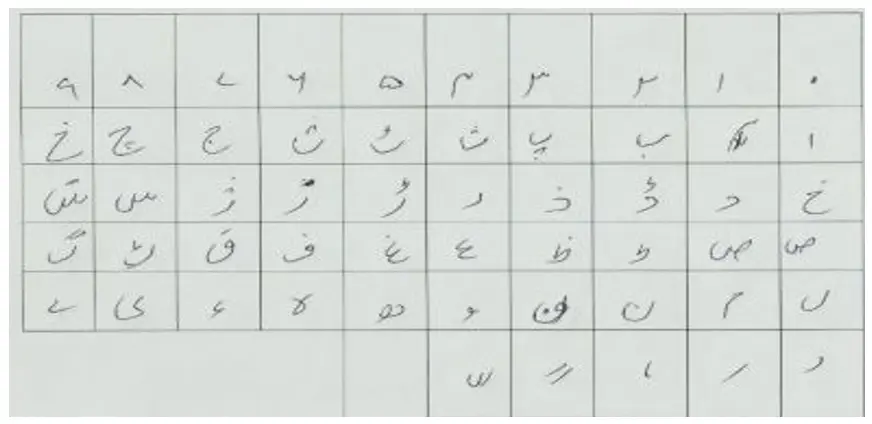 ۰ ۱ ۲ ۳ ۴ ۵ ۶ ۷ ۸ ۹
ا ب پ ت ٹ ث ج چ خ
خ د ڈ ذ ر ڑ ز ژ س ش
ص ض ط ظ ع غ ف ق ک گ
ل م ن و ھ ء ی ے